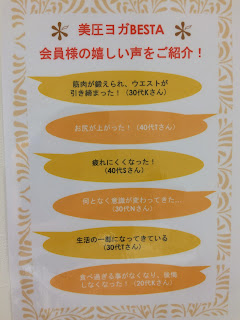 美圧ヨガBESTA
会員様の嬉しい声をご紹介！
筋肉が鍛えられ、ウエストが
引き締まった！（30代Kさん）
お尻が上がった！（40代Tさん）
疲れにくくなった！
（40代Sさん）
何となく意識が変わってきた…
（30代Nさん）
生活の一部になってきている
（30代Tさん）
食べ過ぎる事がなくなり、我慢
しなくなった！（30代Kさん）